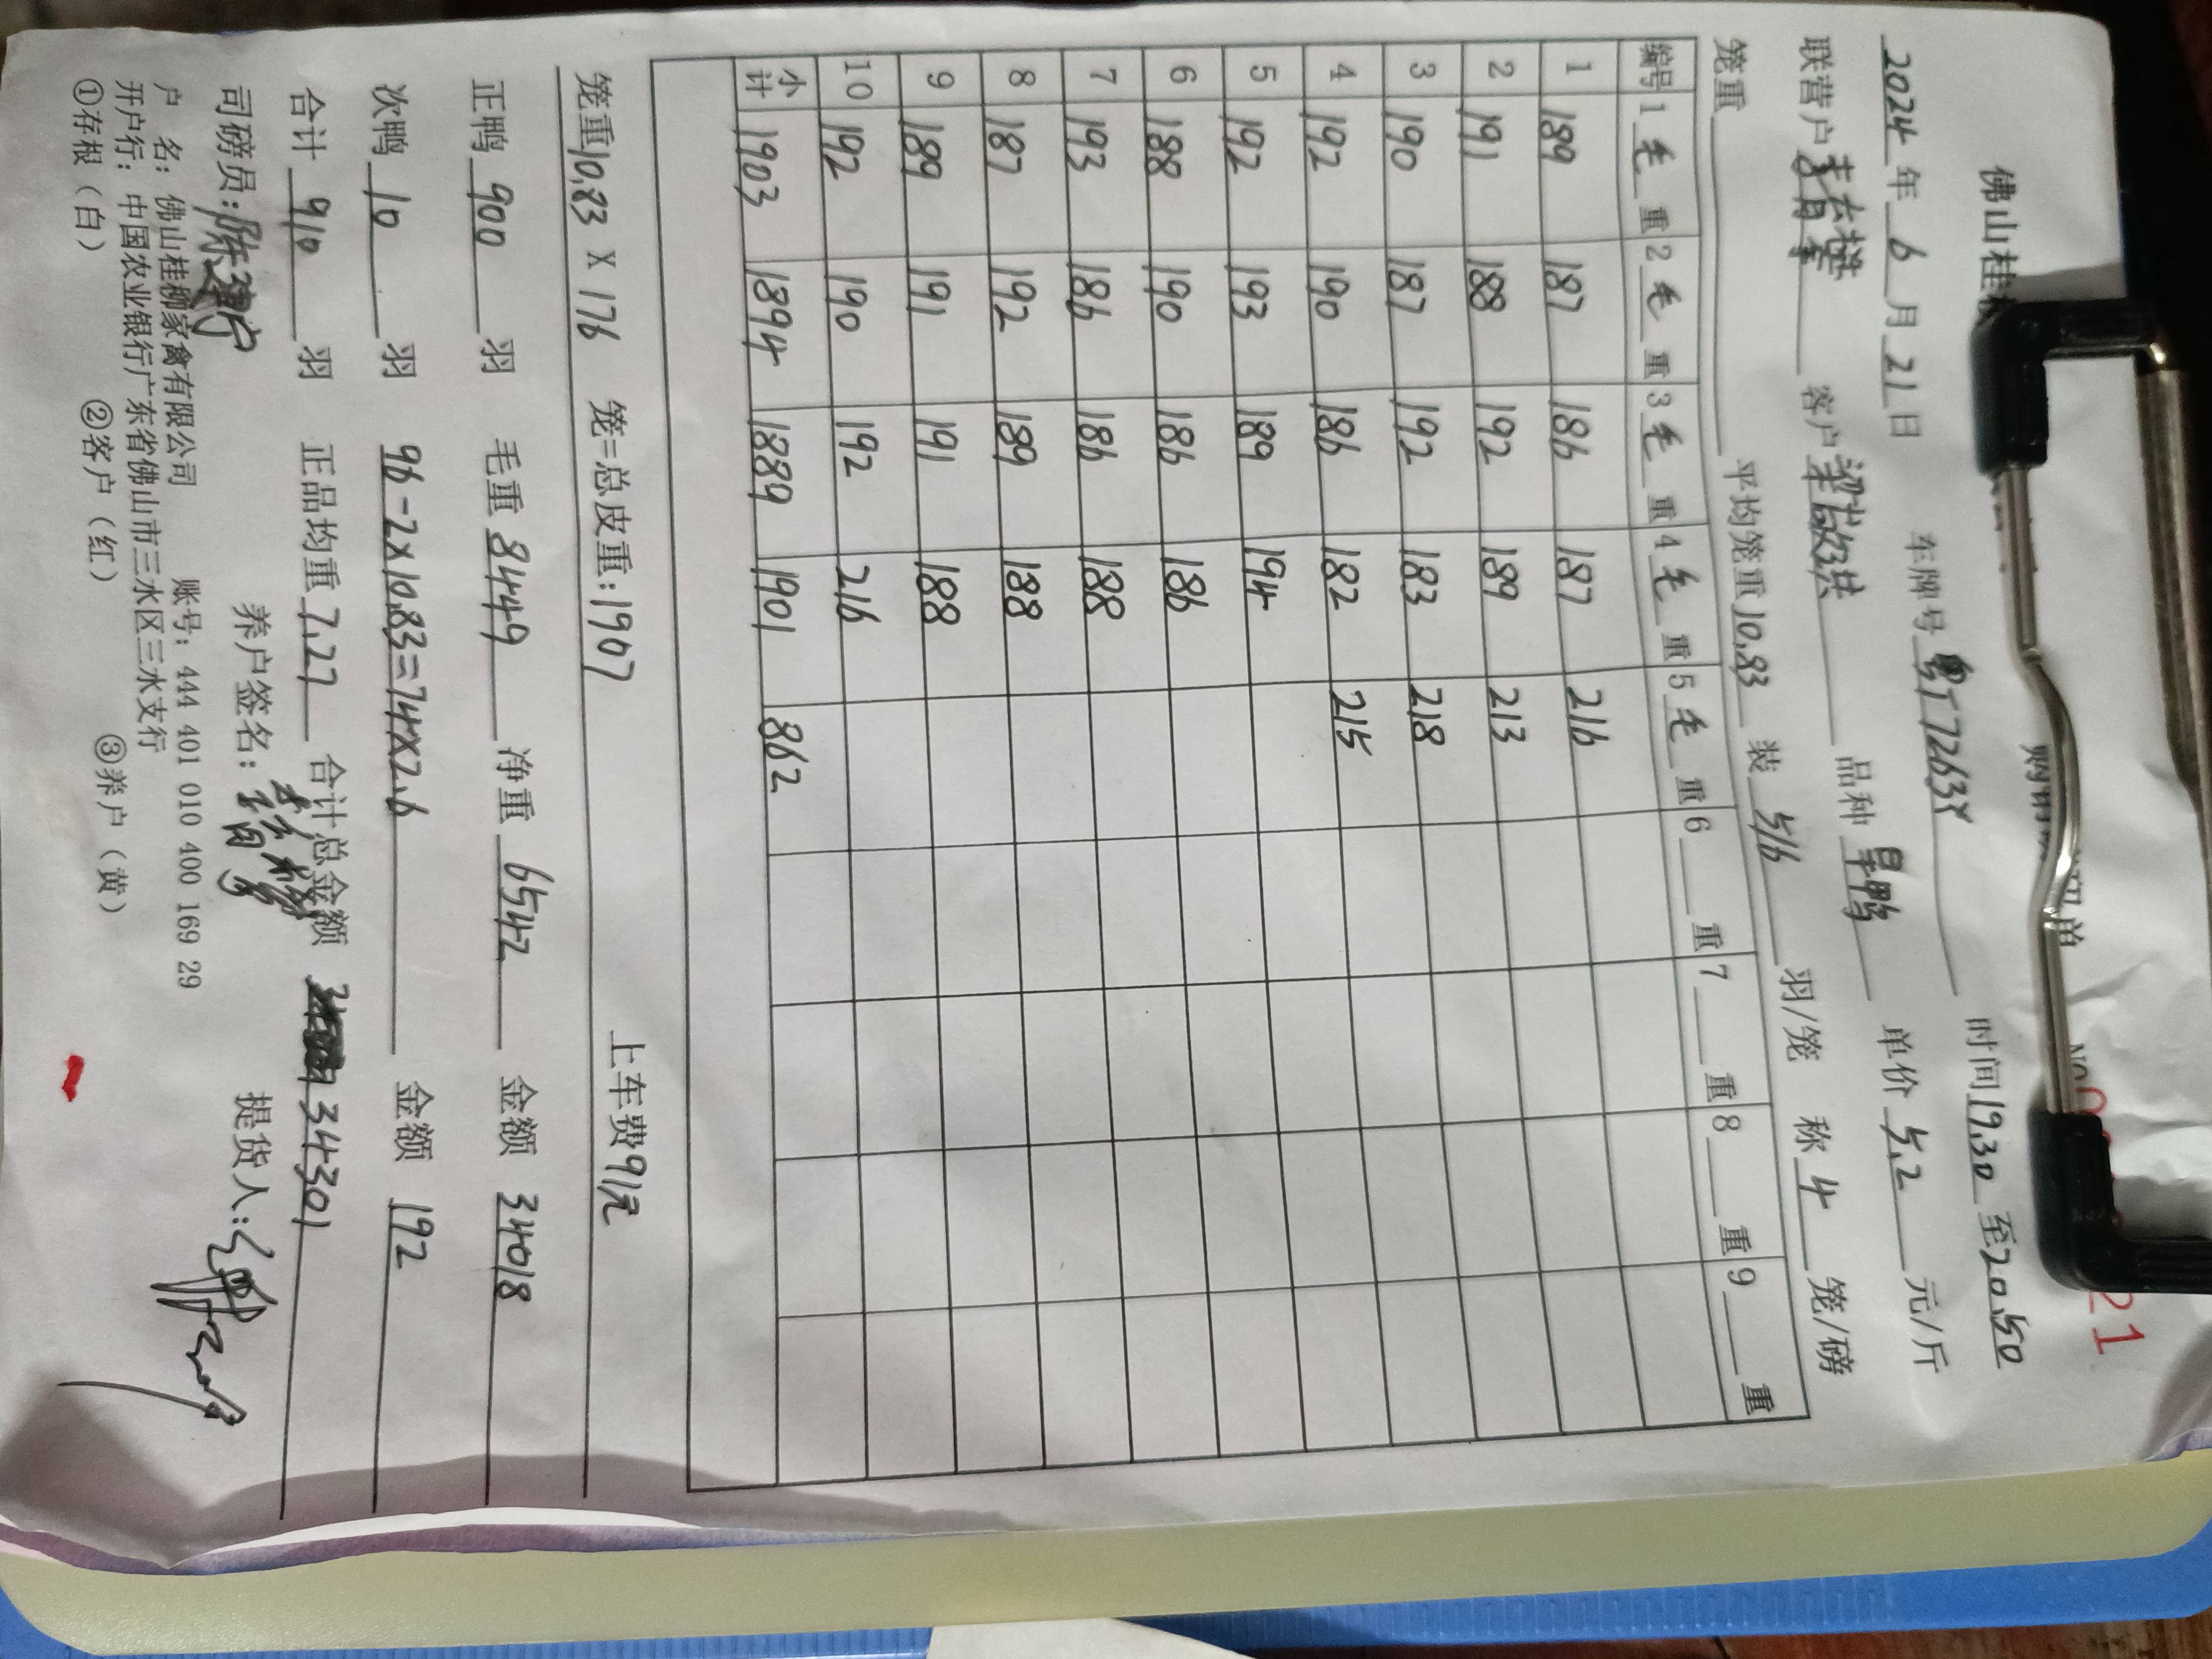 佛山桂
购销 单
21
2024年6月21日 车牌号粤T7263Y 时间19.30至20.50
联营户 客户梁敏洪 品种旱鸭 单价5.2元/斤
笼重 平均笼重10.83 装5/6羽/笼 称4笼/磅
编号 1毛重 2毛重 3毛重 4毛重 5毛重 6 重 7 重 8 重 9 重
1 189 187 186 187 216
2 191 188 192 189 213
3 190 187 192 183 218
4 192 190 186 182 215
5 192 193 189 194
6 188 190 186 186
7 193 186 186 188
8 187 192 189 188
9 189 191 191 188
10 192 190 192 216
小计 1903 1894 1889 1901 862
笼重10.83 X 176 笼=总皮重:1907 上车费91元
正鸭900羽 毛重8449 净重6542 金额34018
次鸭10羽 96-2×10.83=74×2.6 金额192
合计910羽 正品均重7.27 合计总金额 34301
司磅员: 养户签名: 提货人:
户 名:佛山桂柳家禽有限公司 账号:444 401 010 400 169 29
开户行:中国农业银行广东省佛山市三水区三水支行
①存根(白) ②客户(红) ③养户(黄)